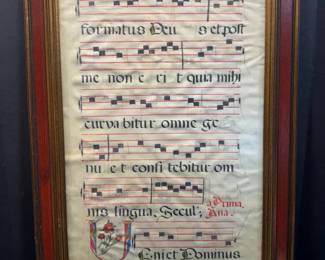 formatus Deu s et post
me non e ri t quia mihi
curvabitur omne ge
nu et confitebitur om
nis lingua, Secul;
a Prima
Ana.
Eniet Dominus